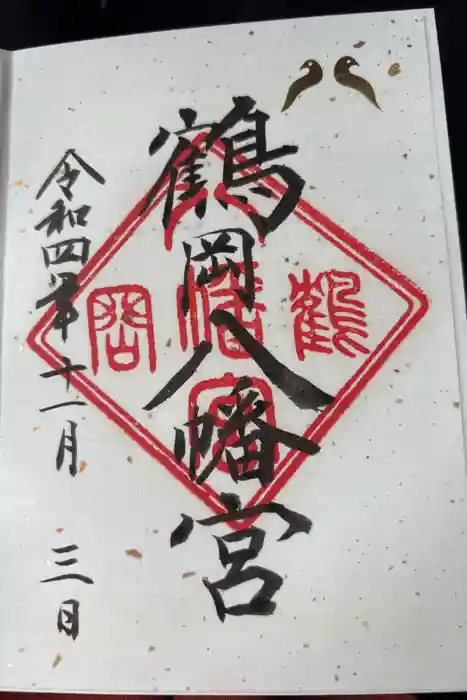 鶴岡八幡宮
令和四年十一月三日
鶴
岡
八
幡
宮